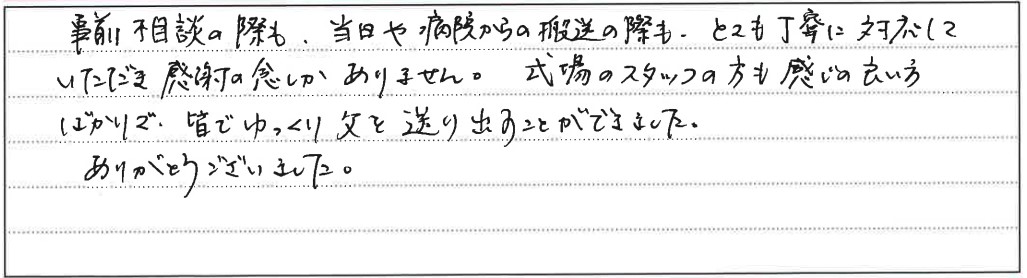 事前相談の際も、当日や病院からの搬送の際も、とても丁寧に対応して
いただき感謝の念しかありません。 式場のスタッフの方も感じの良い方
ばかりで、皆でゆっくり父を送り出すことができました。
ありがとうございました。